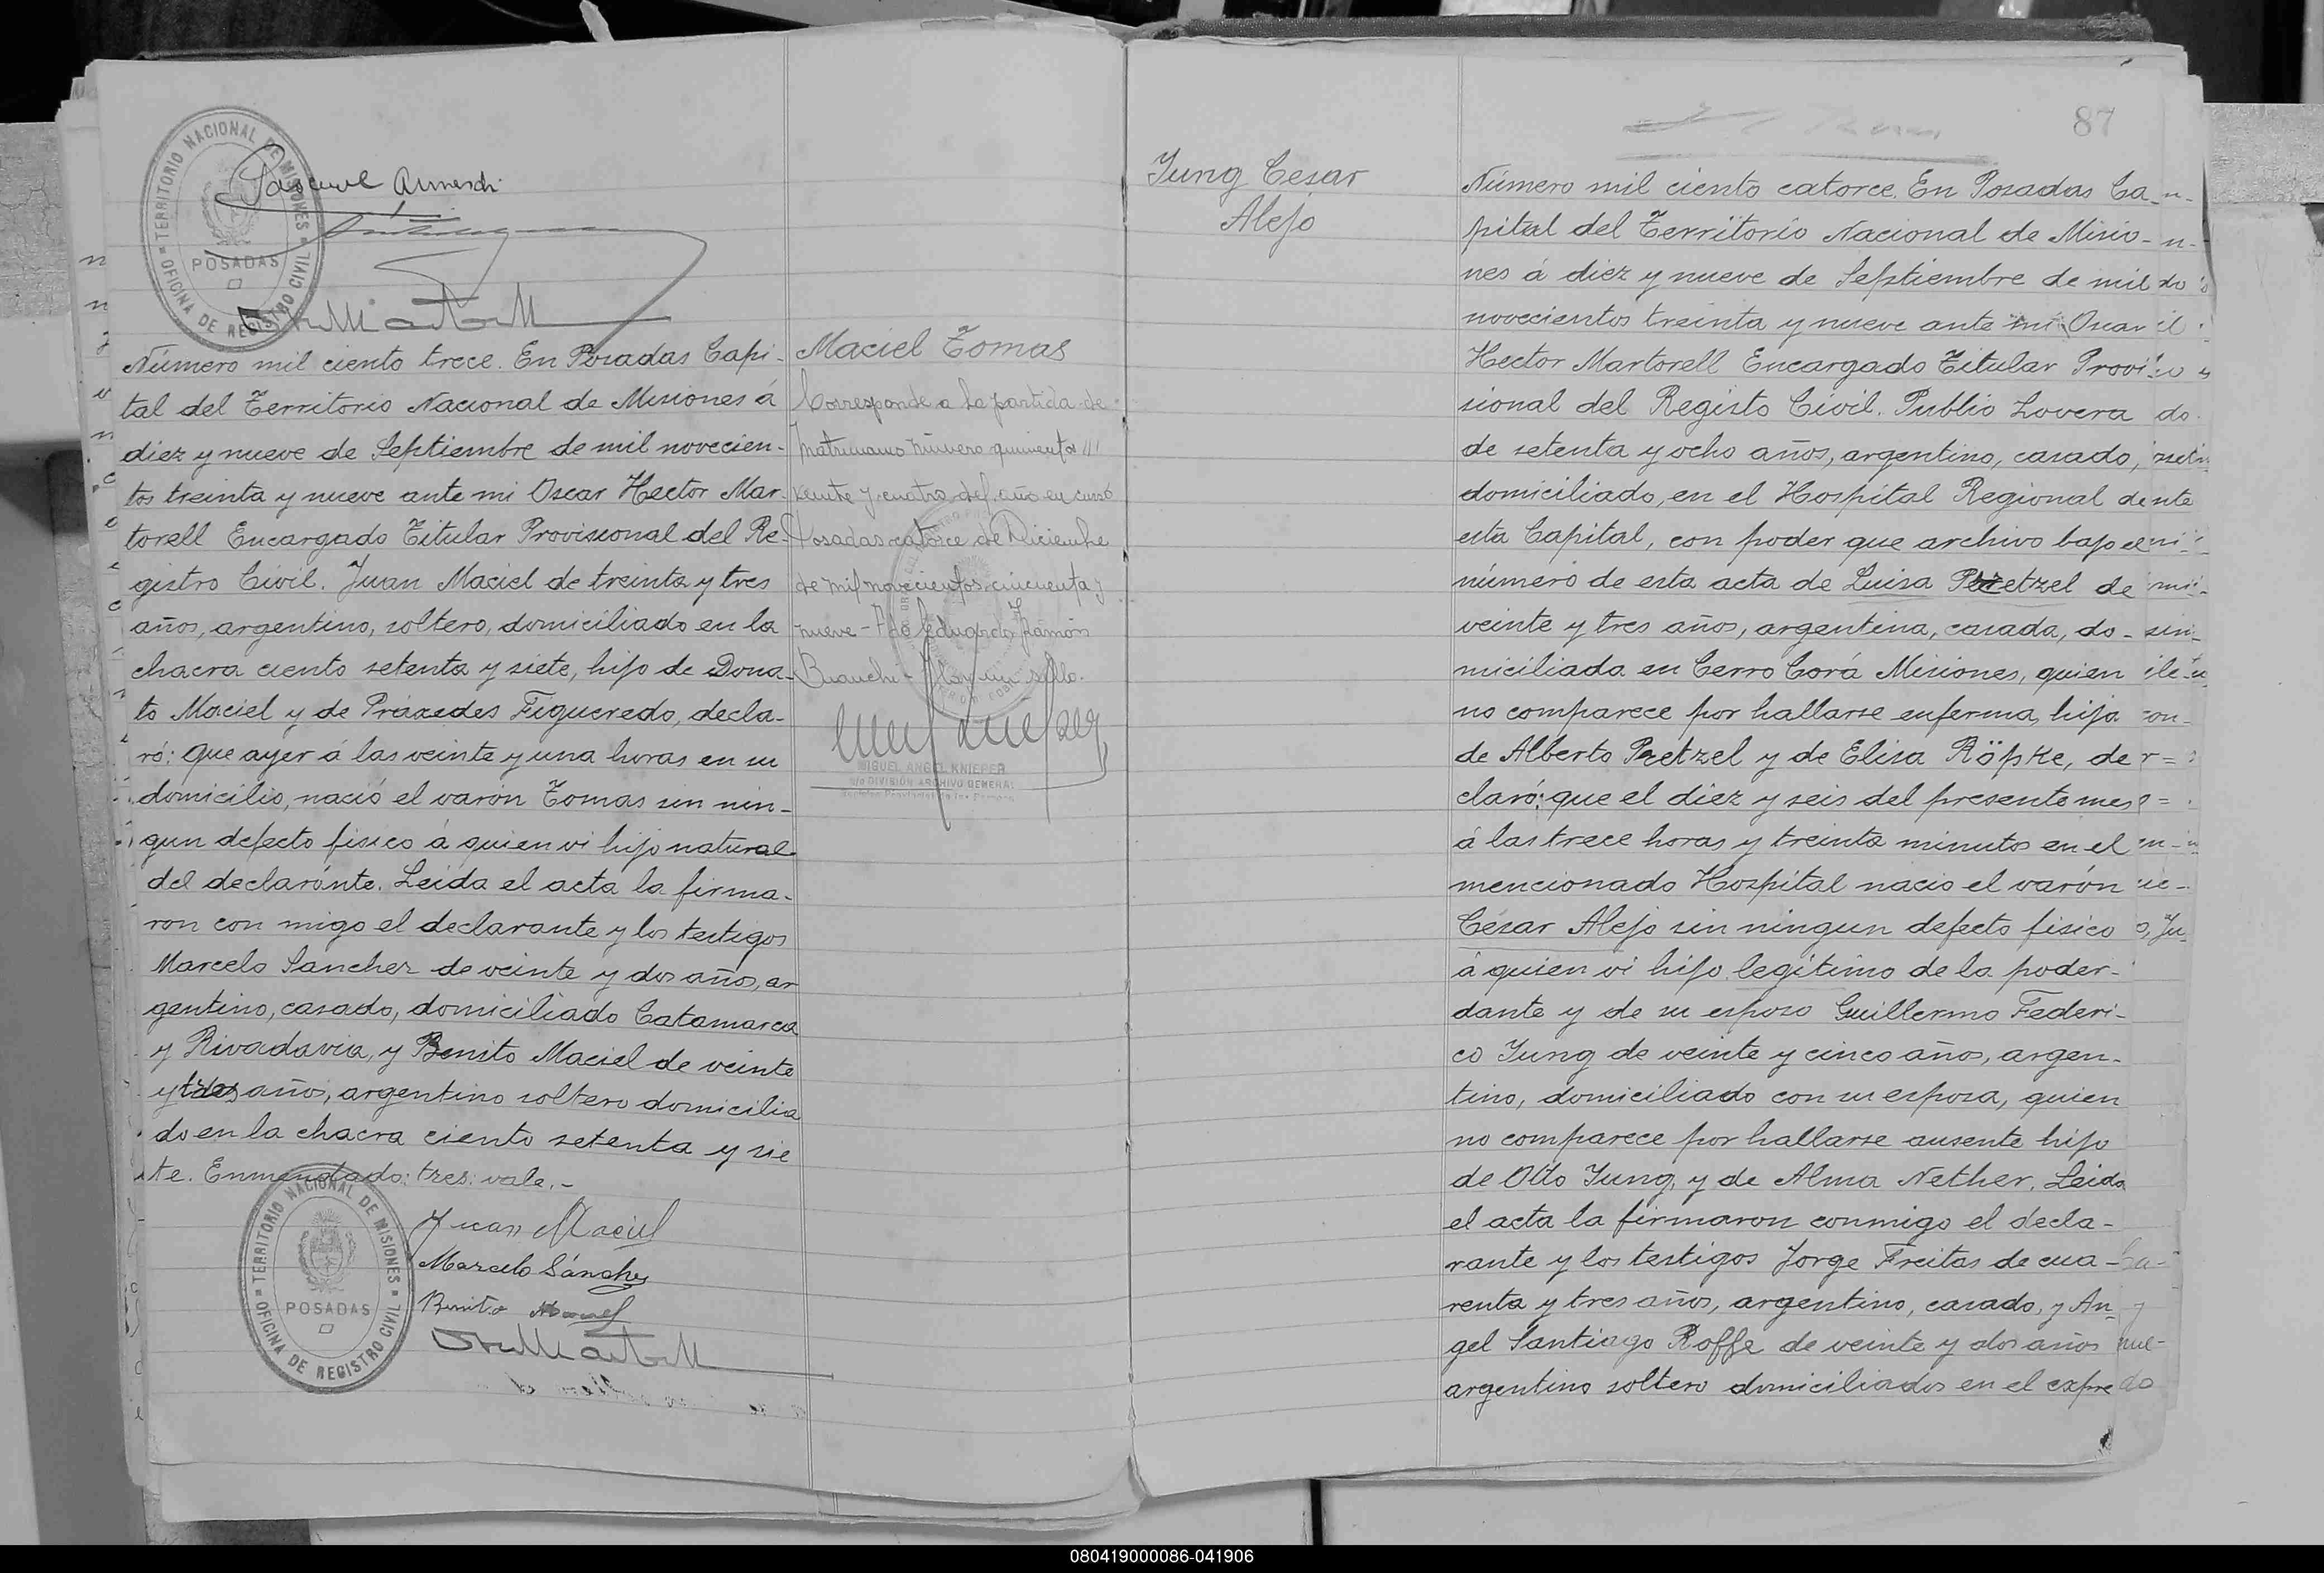 TERRITORIO NACIONAL DE MISIONES
OFICINA DE REGISTRO CIVIL
POSADAS
Número mil ciento trece. En Posadas Capi-
tal del Territorio Nacional de Misiones á
diez y nueve de Septiembre de mil novecien-
tos treinta y nueve ante mi Oscar Hector Mar-
torell Encargado Titular Provisional del Re-
gistro Civil. Juan Maciel de treinta y tres
años, argentino, soltero, domiciliado en la
chacra ciento setenta y siete, hijo de Dona-
to Maciel y de Práxedes Figueredo, decla-
ró: que ayer á las veinte y una horas en su
domicilio, nació el varón Tomas sin nin-
gun defecto fisico á quien vi hijo natural
del declaránte. Leida el acta la firma-
ron con migo el declarante y los testigos
Marcelo Sanchez de veinte y dos años, ar
gentino, casado, domiciliado Catamarca
y Rivadavia, y Benito Maciel de veinte
y tres años, argentino soltero domicilia
do en la chacra ciento setenta y sie
te. Enmendado: tres: vale.-
Juan Maciel
Marcelo Sánchez
Benito Maciel
TERRITORIO NACIONAL DE MISIONES
OFICINA DE REGISTRO CIVIL
POSADAS
Maciel Tomas
Corresponde a la partida de
matrimonio número quinientos
veinte y cuatro del año en curso
Posadas catorce de Diciembre
de mil novecientos cincuenta y
nueve - Fdo Eduardo Ramón
Bianchi - Hay un sello.
MIGUEL ANGEL KNIEPER
DIVISIÓN ARCHIVO GENERAL
87
Jung Cesar
Alejo
Número mil ciento catorce. En Posadas Ca-
pital del Territorio Nacional de Misio-
nes á diez y nueve de Septiembre de mil
novecientos treinta y nueve ante mi Oscar
Hector Martorell Encargado Titular Provi-
sional del Registo Civil. Publio Lovera
de setenta y ocho años, argentino, casado,
domiciliado, en el Hospital Regional de
esta Capital, con poder que archivo bajo el
número de esta acta de Luisa Pretzel de
veinte y tres años, argentina, casada, do-
miciliada en Cerro Corá Misiones, quien
no comparece por hallarse enferma, hija
de Alberto Pretzel y de Elisa Röpke, de
claró: que el diez y seis del presente mes
á las trece horas y treinta minutos en el
mencionado Hospital nacio el varón
César Alejo sin ningun defecto fisico
á quien vi hijo legítimo de la poder-
dante y de su esposo Guillermo Federi-
co Jung de veinte y cinco años, argen-
tino, domiciliado con su esposa, quien
no comparece por hallarse ausente hijo
de Otto Jung, y de Alma Nether. Leida
el acta la firmaron conmigo el decla-
rante y los testigos Jorge Freitas de cua-
renta y tres años, argentino, casado, y An-
gel Santiago Roffe de veinte y dos años
argentino soltero domiciliados en el expre
080419000086-041906